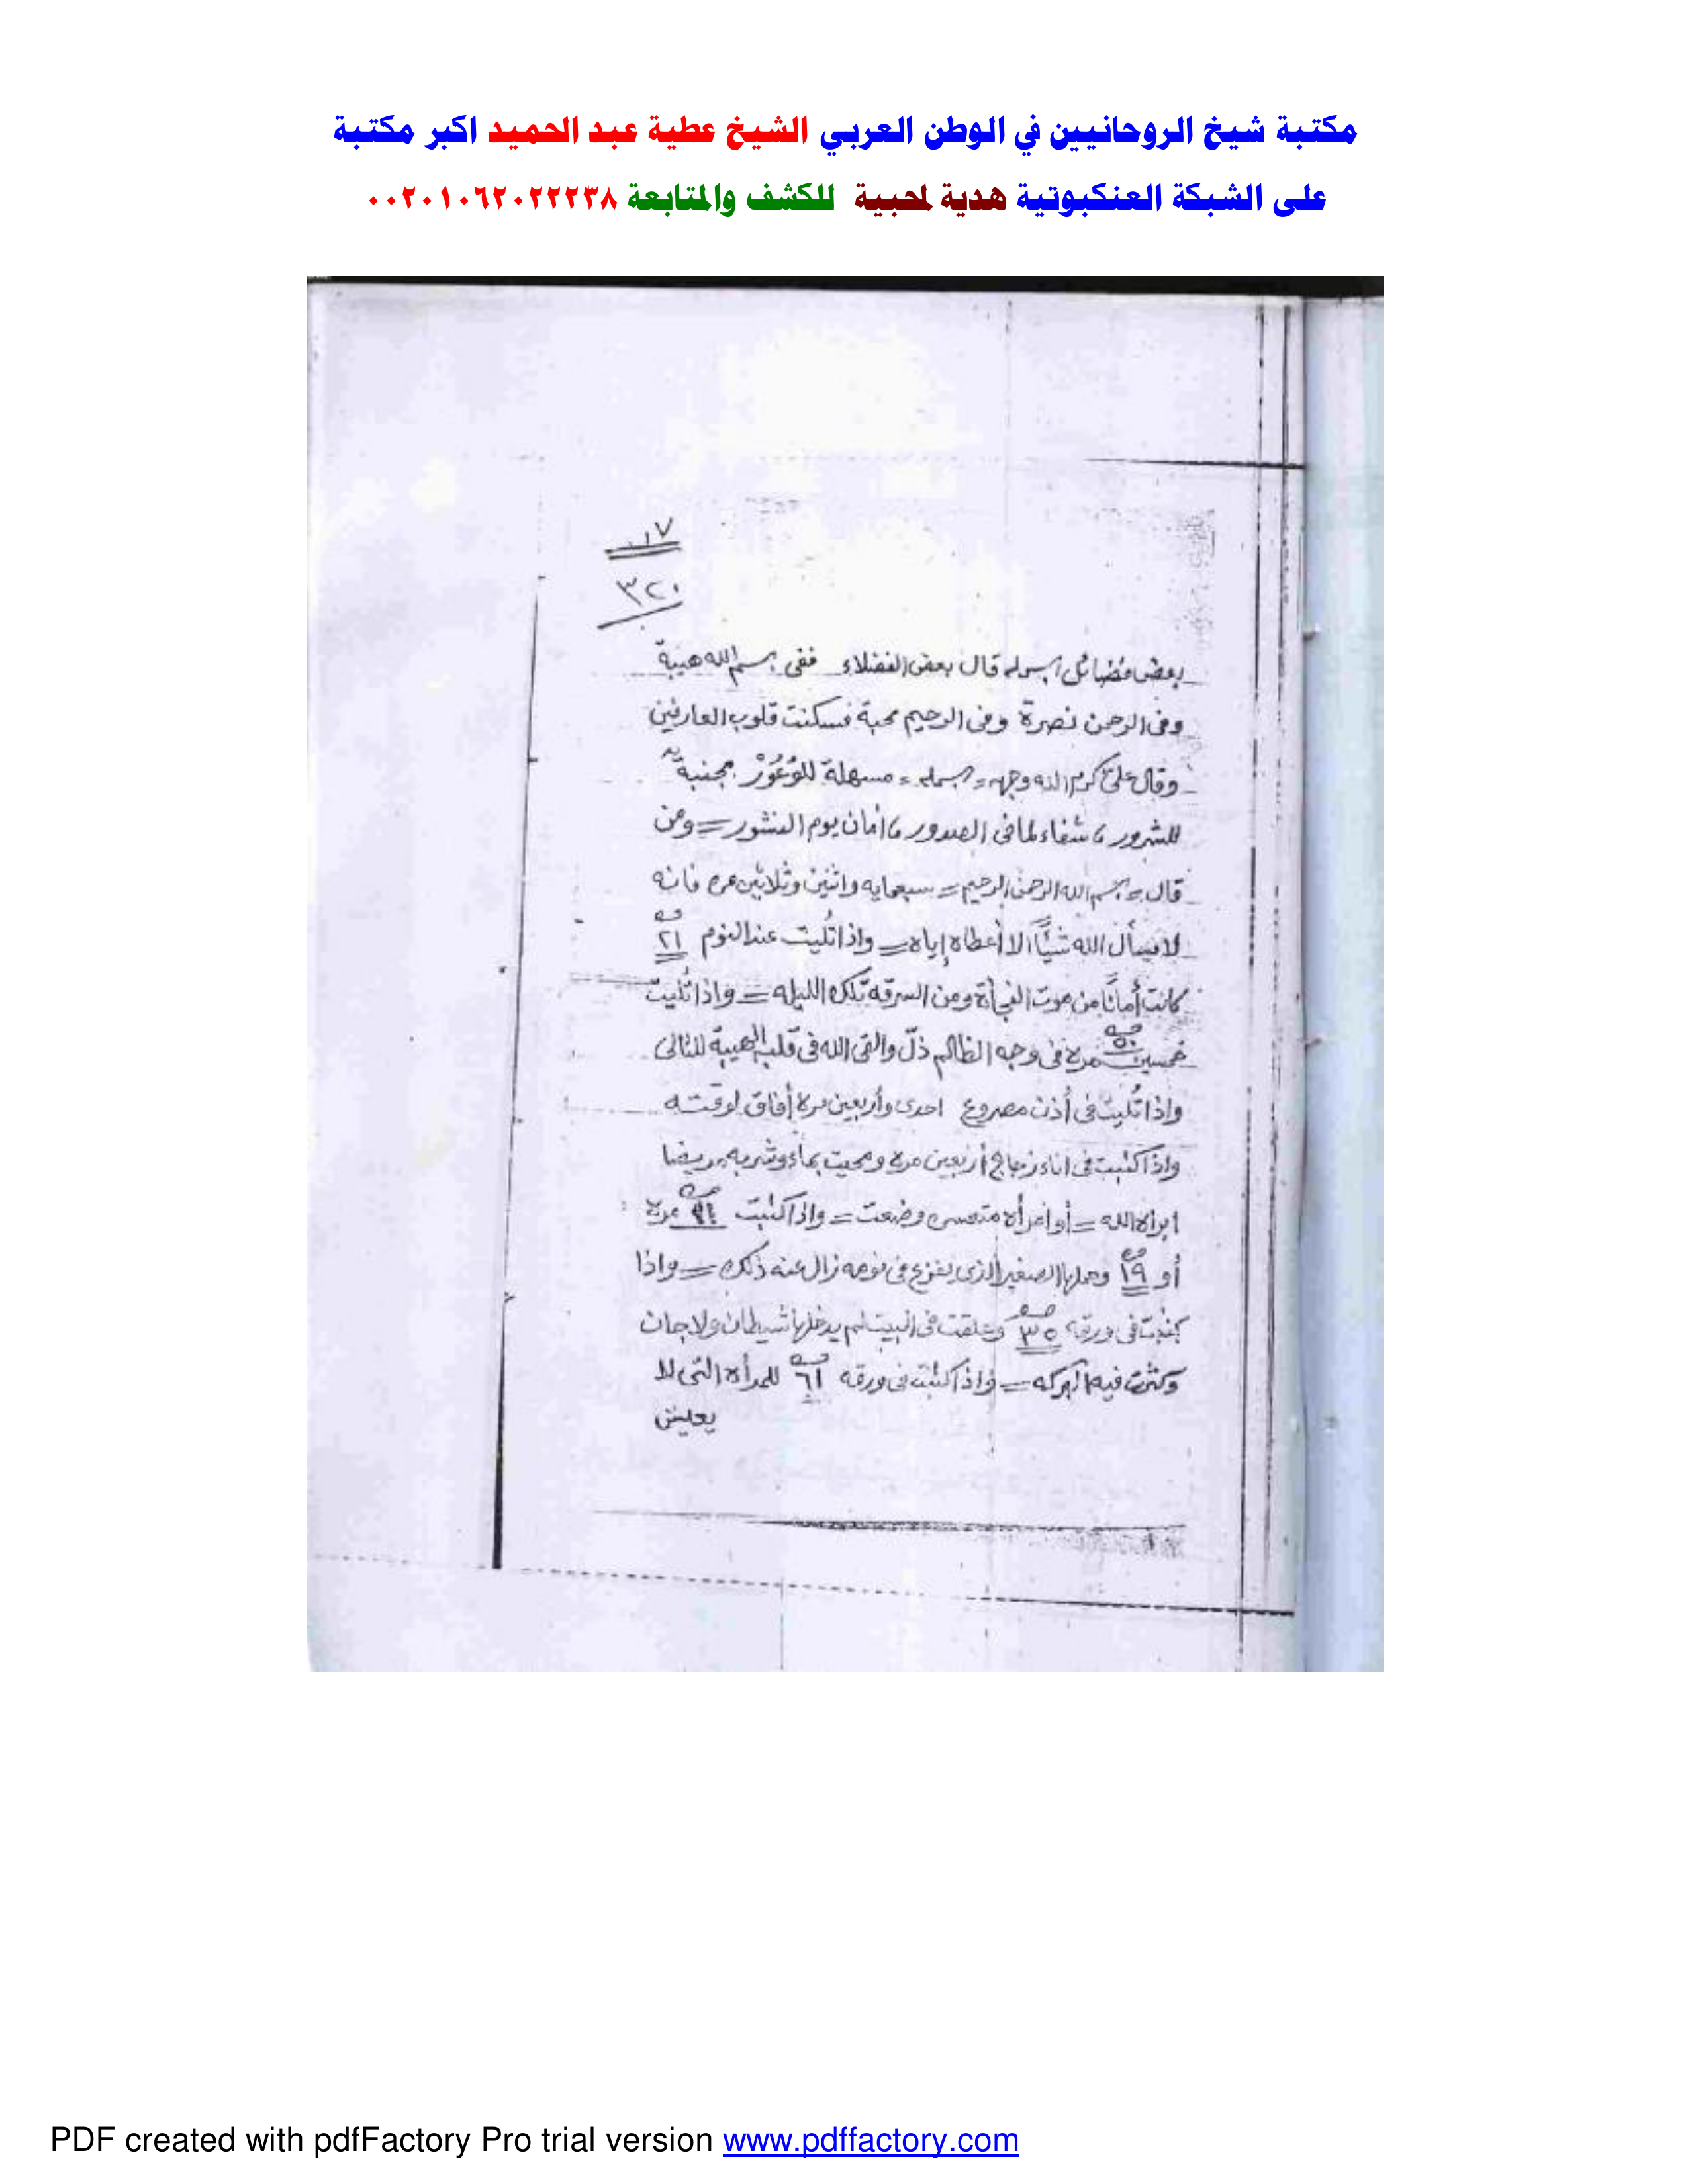 مكتبة شيخ الروحانيين في الوطن العربي الشيخ عطية عبد الحميد اكبر مكتبة
على الشبكة العنكبوتية هدية لمحبية للكشف والمتابعة ٠٠٢٠١٠٦٢٠٢٢٢٣٨
١٧
٣٢٠
بعض فضائل البسمله قال بعض الفضلاء ففى بسم الله هيبة
وفى الرحمن نصرة وفى الرحيم محبة فسكنت قلوب العارفين
وقال على كرم الله وجهه = البسمله = مسهلة للوُعُوْر مجنبة
للشرور ، شفاء لما فى الصدور ، أمان يوم النشور = ومن
قال = بسم الله الرحمن الرحيم = سبعمايه واثنين وثلاثين مره فانه
لا يسأل الله شيًا الا أعطاه إياه = واذا تُليت عند النوم ٢١
كانت أمانًا من موت الفجأة ومن السرقه تلك الليله = واذا تُليت
خمسين ٥٠ مرة فى وجه الظالم ذلّ والقى الله فى قلبه الهيبة للتالى
واذا تُليت فى أذن مصروع احدى وأربعين مرة أفاق لوقته
واذا كتبت فى اناء زجاج أربعين مرة ومحيت بماء وشربه مريضا
ابراه الله = أو امرأة متعسره وضعت = واذا كتبت ٢١ مرة
أو ١٩ وحملها الصغير الذى يفزع فى نومه زال عنه ذلك = واذا
كتبت فى ورقة ٣٥ وعلقت فى البيت لم يدخلها شيطان ولا جان
وكثرت فيه البركه = واذا كتبت فى ورقه ٦١ للمرأة التى لا
يعيش
PDF created with pdfFactory Pro trial version www.pdffactory.com